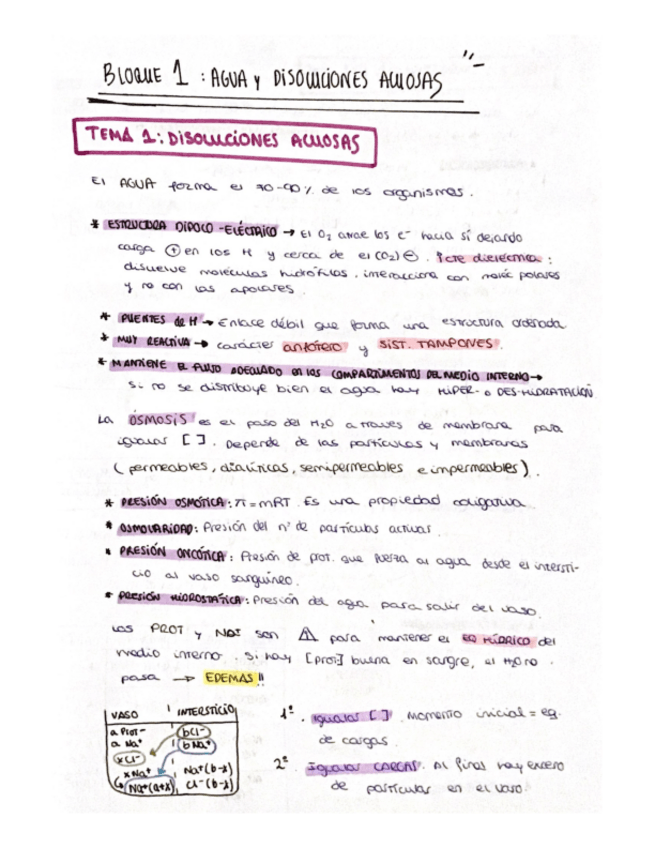 BLOQUE 1 : AGUA y DISOLUCIONES ACUOSAS
TEMA 1: DISOLUCIONES ACUOSAS
El AGUA forma el 70-90% de los organismos.
* ESTRUCTURA DIPOLO-ELÉCTRICO → El O₂ atrae los e⁻ hacia sí dejando
carga ⊕ en los H y cerca de el (O₂) ⊖. ↑cte dieléctrica:
disuelve moléculas hidrófilas. interacciona con moléc polares
y no con las apolares.
* PUENTES de H → Enlace débil que forma una estructura ordenada
* MUY REACTIVA → carácter anfótero y SIST. TAMPONES.
* MANTIENE EL FLUJO ADECUADO en los COMPARTIMENTOS DEL MEDIO INTERNO →
si no se distribuye bien el agua hay HIPER- o DES-HIDRATACIÓN
La ÓSMOSIS es el paso del H₂O a través de membrana para
igualar [ ]. Depende de las partículas y membranas
(permeables, dialíticas, semipermeables e impermeables).
* PRESIÓN OSMÓTICA: π = mRT. Es una propiedad coligativa.
* OSMOLARIDAD: Presión del nº de partículas activas.
* PRESIÓN ONCÓTICA: Presión de prot. que fuerza al agua desde el intersti-
cio al vaso sanguíneo.
* PRESIÓN HIDROSTÁTICA: Presión del agua para salir del vaso.
Las PROT y Na+ son ⚠ para mantener el EQ HÍDRICO del
medio interno. Si hay [prot] buena en sangre, el H₂O no
pasa → EDEMAS!!
VASO INTERSTICIO
a Prot⁻ bCl⁻
a Na⁺ bNa⁺
xCl⁻
xNa⁺ Na⁺(b-x)
Na⁺(a+x) Cl⁻(b-x)
1º. Igualar [ ]. Momento inicial = eq.
de cargas.
2º. Igualar CARGAS. Al final hay exceso
de partículas en el vaso.